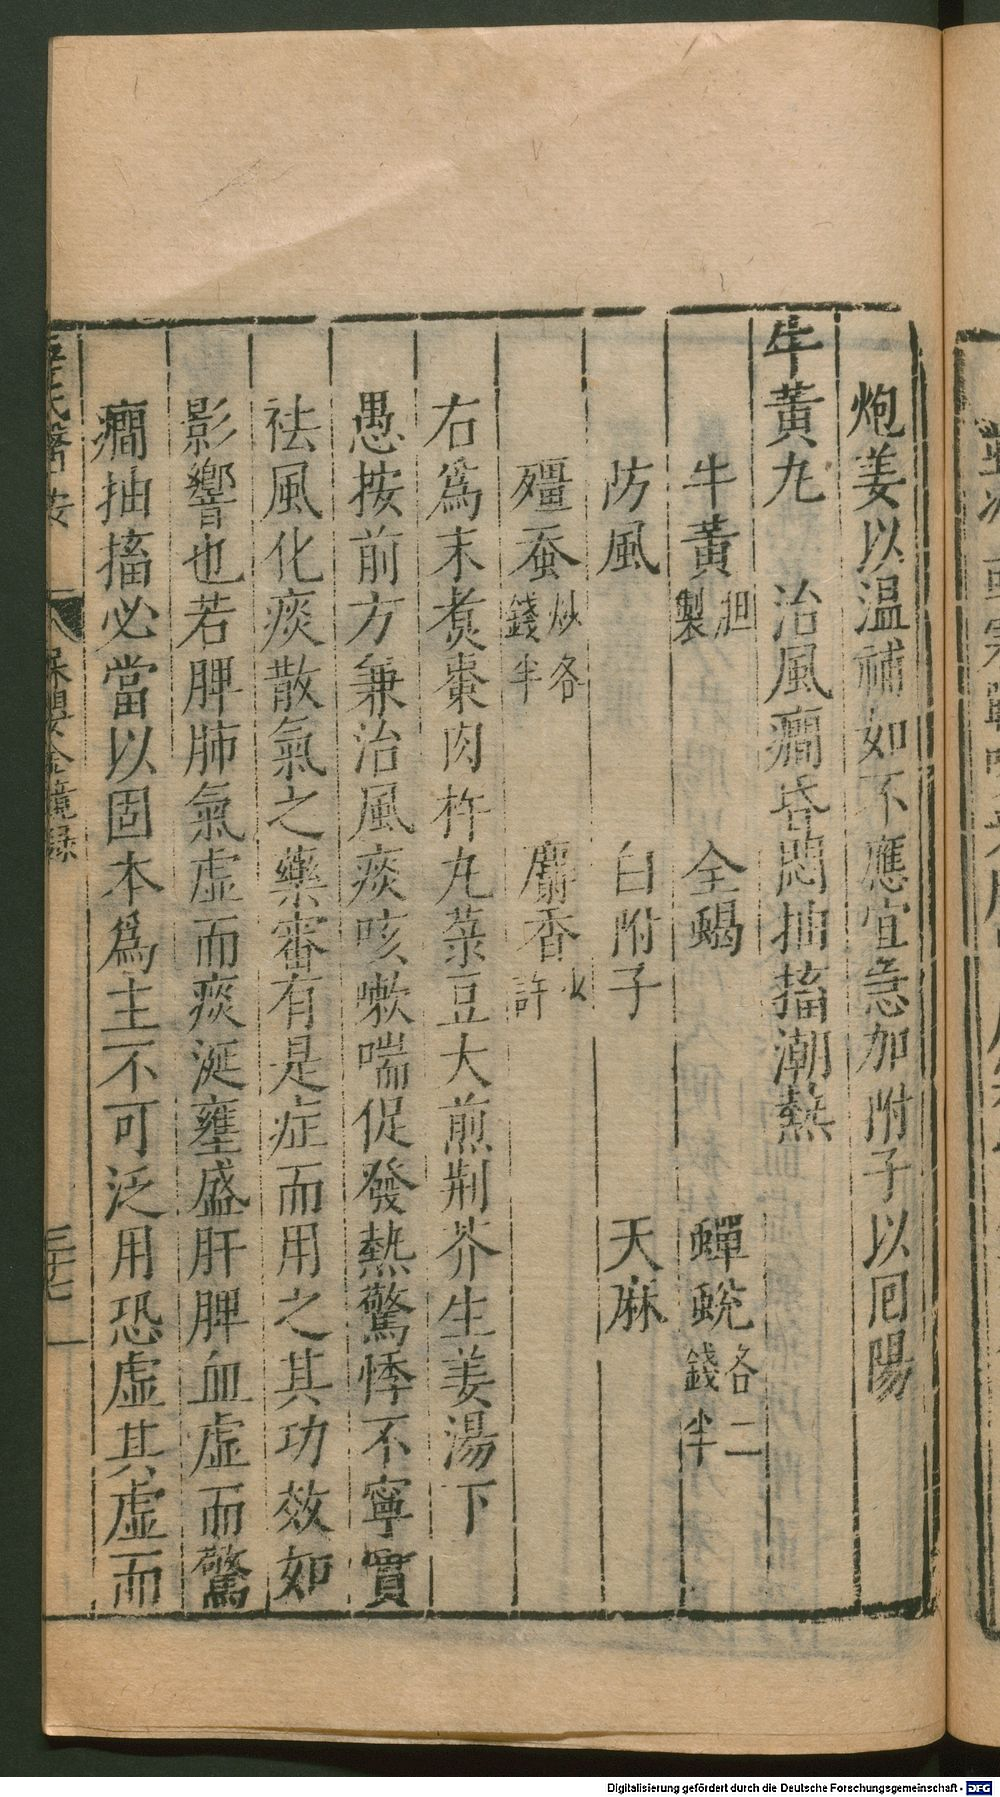 炮姜以温補如不應宜急加附子以囘陽
牛黃丸　治風癇昏悶抽搐潮熱
牛黃胆製　全蝎　蟬蛻各二錢半
防風　白附子　天麻
殭蚕炒各錢半　麝香少許
右爲末煮棗肉杵丸菉豆大煎荆芥生姜湯下
愚按前方兼治風痰咳嗽喘促發熱驚悸不寧實
祛風化痰散氣之藥審有是症而用之其功效如
影響也若脾肺氣虛而痰涎壅盛肝脾血虛而驚
癇抽搐必當以固本爲主不可泛用恐虛其虛而
薛氏醫按　保嬰金鏡錄　三十七
Digitalisierung gefördert durch die Deutsche Forschungsgemeinschaft - DFG